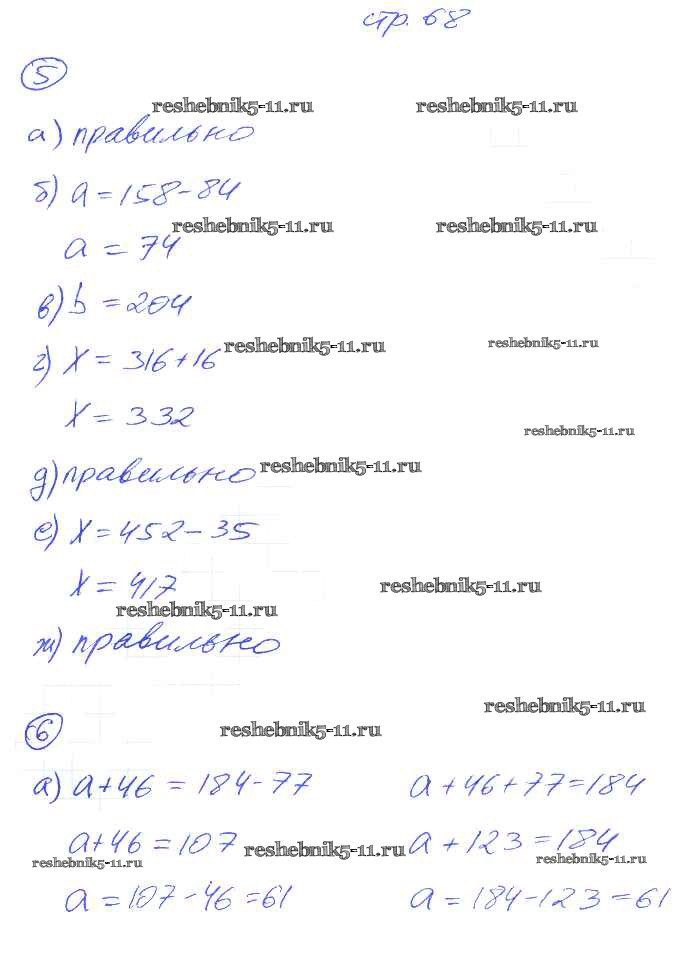 стр. 68
5
reshebnik5-11.ru reshebnik5-11.ru
а) правильно
б) a = 158 - 84
reshebnik5-11.ru reshebnik5-11.ru
a = 74
в) b = 204
reshebnik5-11.ru reshebnik5-11.ru
г) X = 316 + 16
X = 332
reshebnik5-11.ru
д) правильно reshebnik5-11.ru
е) X = 452 - 35
X = 417 reshebnik5-11.ru
reshebnik5-11.ru
ж) правильно
reshebnik5-11.ru
6 reshebnik5-11.ru
а) a + 46 = 184 - 77 a + 46 + 77 = 184
a + 46 = 107 reshebnik5-11.ru a + 123 = 184
reshebnik5-11.ru reshebnik5-11.ru
a = 107 - 46 = 61 a = 184 - 123 = 61